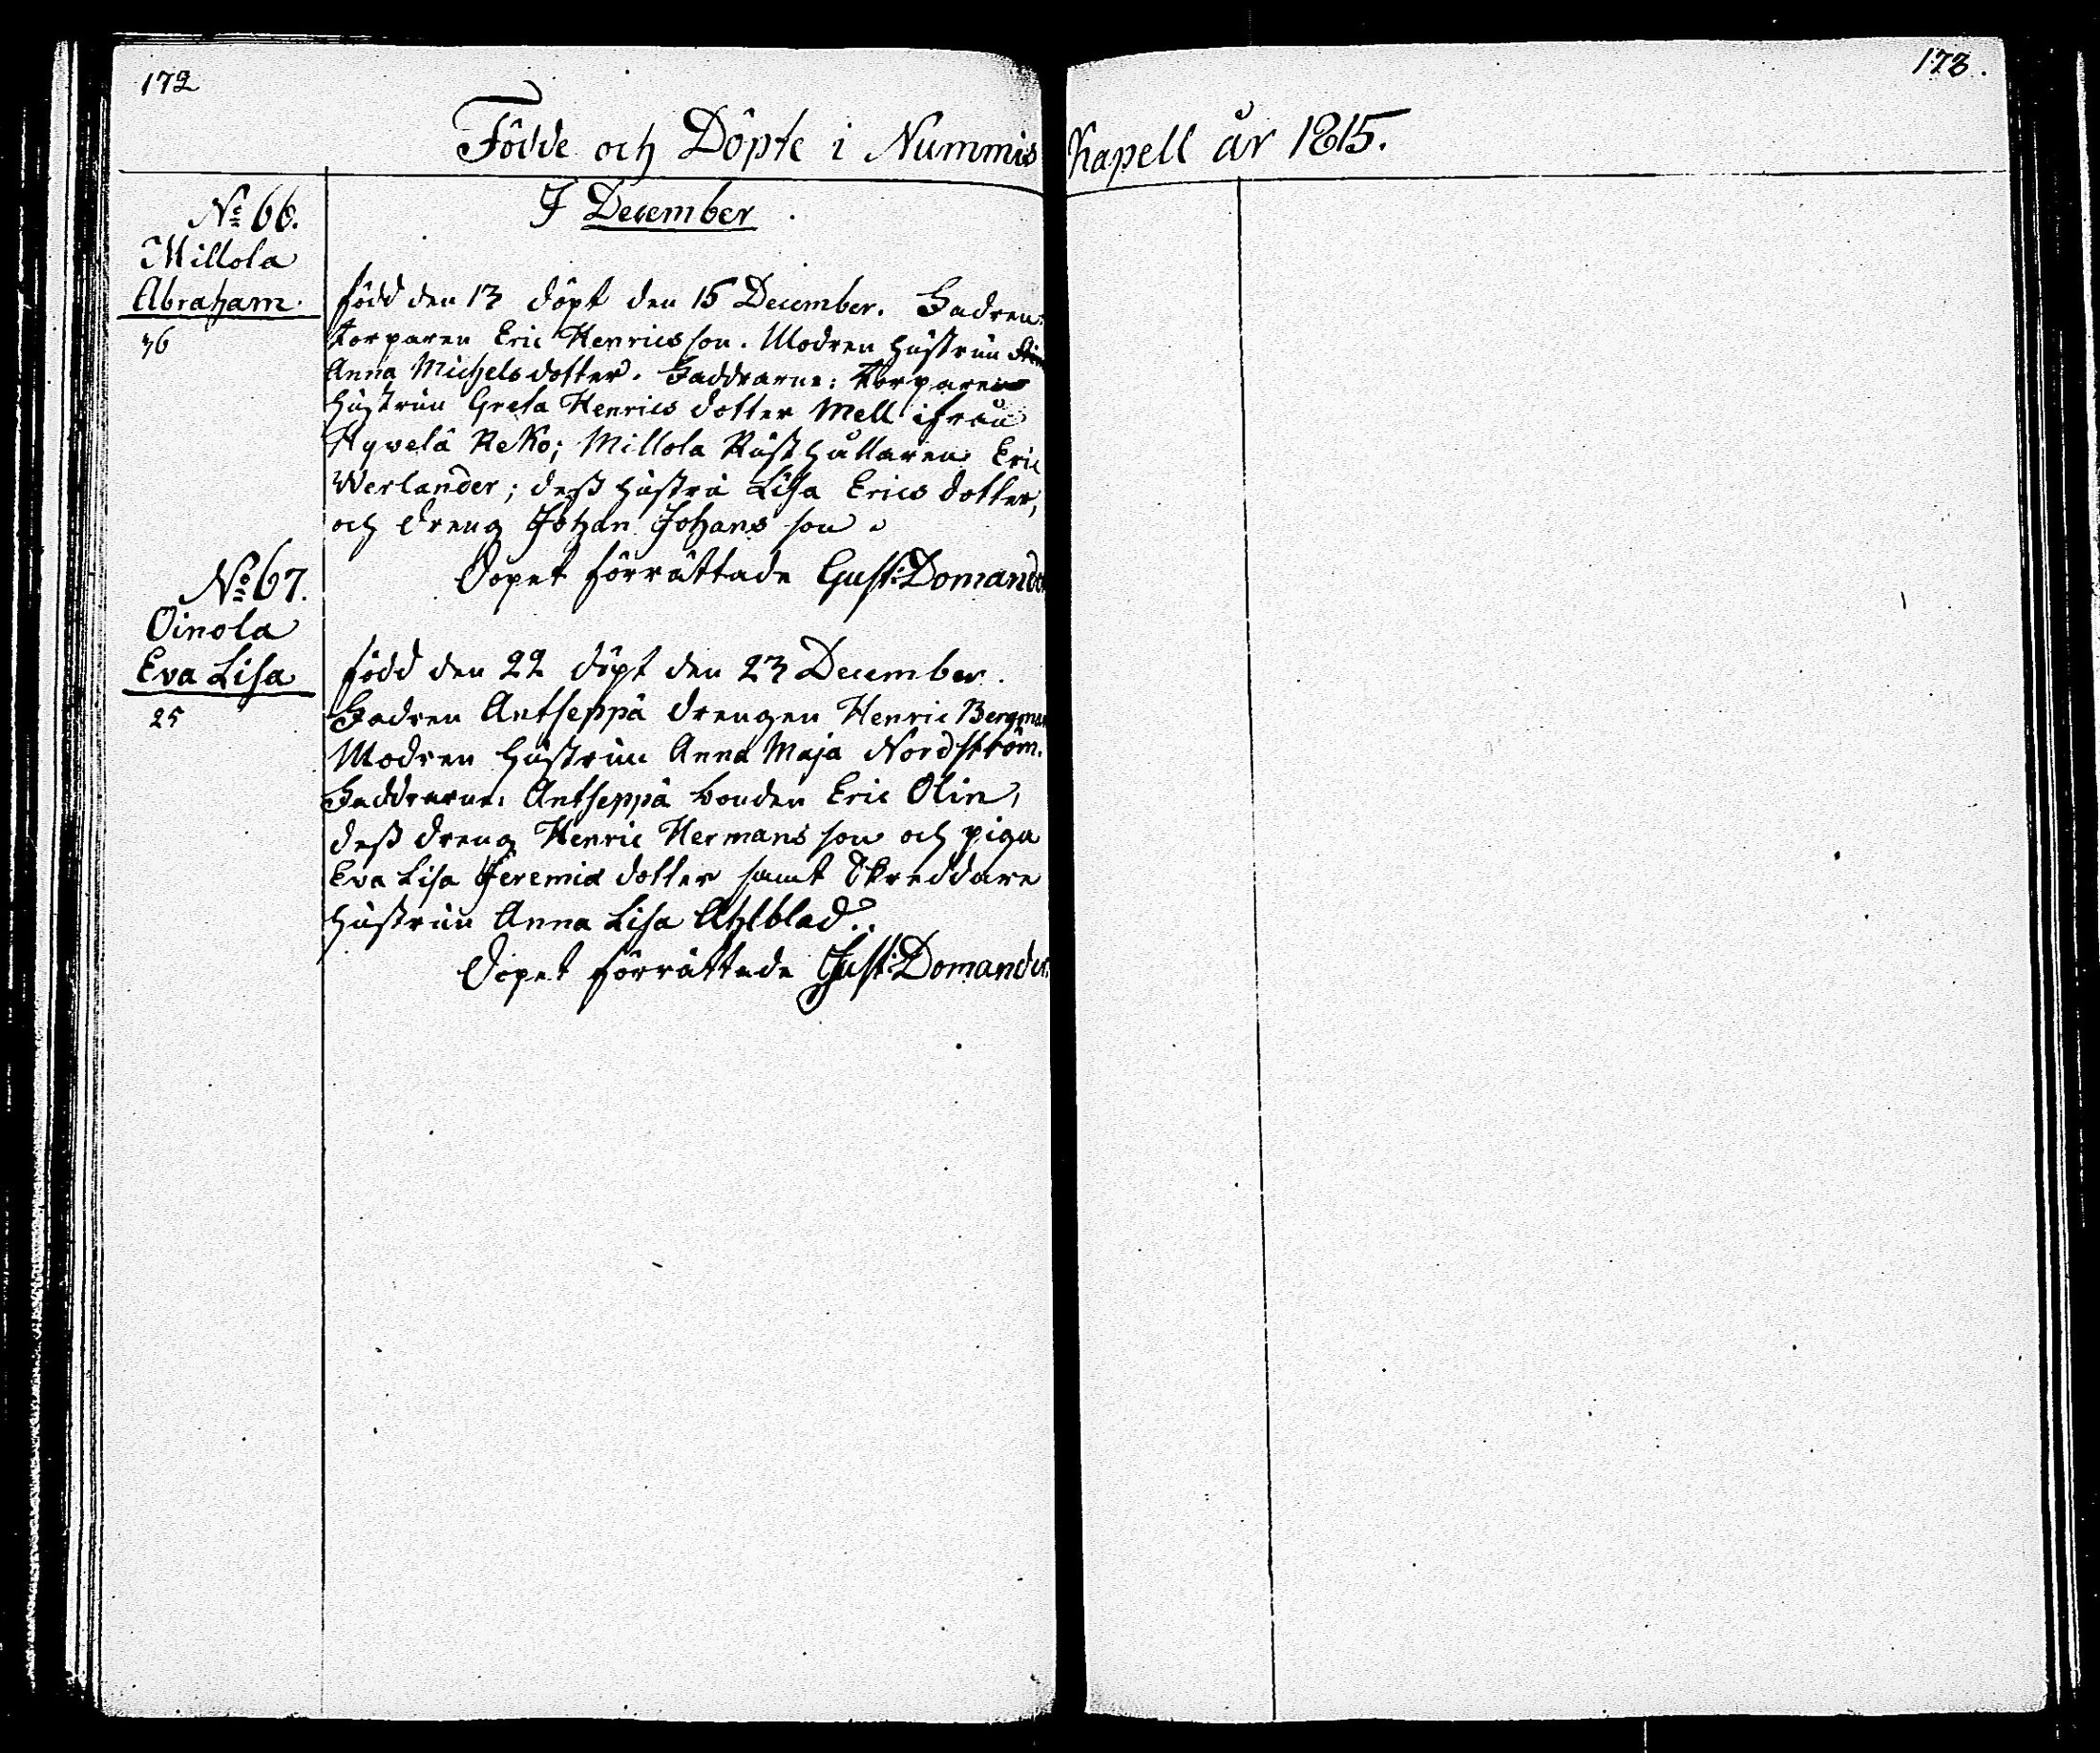 172
173.
Födde och Döpte i Nummis Kapell år 1815.
I December
No 66.
Millola
Abraham.
36
född den 13 döpt den 15 December. Fadren:
torparen Eric Henricsson. Modren hustrun
Anna Michelsdotter. Faddrarne: Torpare
hustrun Greta Henricsdotter Mell ifrån
Hyvelä Reko; Millola Rusthållaren Eric
Werlander; dess hustru Lisa Ericsdotter,
och dreng Johan Johansson.
Dopet förrättade Gust: Domander
No 67.
Oinola
Eva Lisa
25
född den 22 döpt den 23 December.
Fadren Antseppä drengen Henric Bergman
Modren hustrun Anna Maja Nordström.
Faddrarne: Antseppä bonden Eric Olin,
dess dreng Henric Hermansson och piga
Eva Lisa Jeremiæ dotter samt Skreddare
hustrun Anna Lisa Ahlblad.
Dopet förrättade Gust: Domander